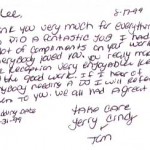 Lee, 8-17-99
Thank you very much for everything
DID A Fantastic Job! I had
lot of compliments on your work
everybody loved you. you really made
Reception very enjoyable. Keep
the good work. If I hear of
anybody needing A DJ I will
to you. We all had A great
Wedding Date
-31-99
TAKE CARE
Jerry Cindy
Tom